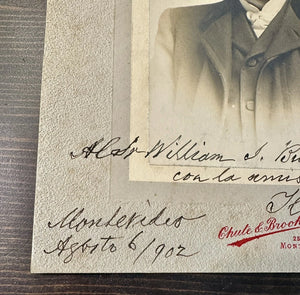 Al Sr William J. Bu
con la amis
Montevideo
Agosto 6/902
Chute & Brook
25
MONT